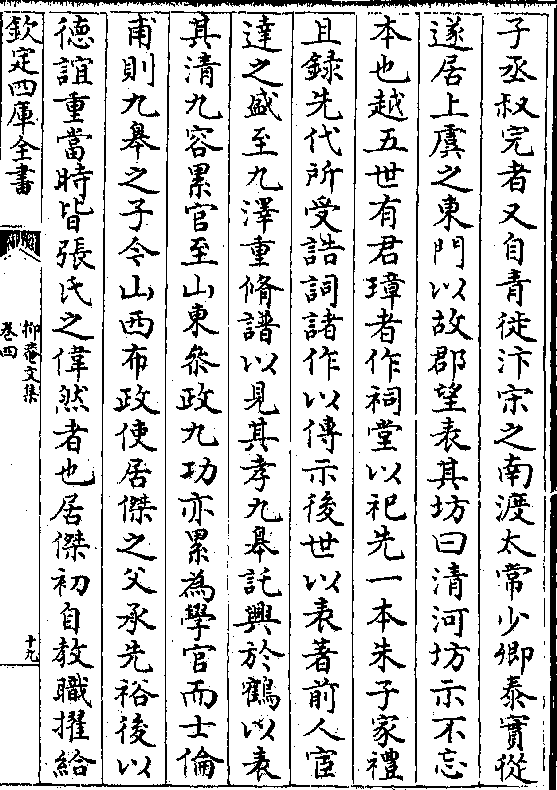 子丞叔完者又自青徙汴宋之南渡太常少卿泰實從
遂居上虞之東門以故郡望表其坊曰清河坊示不忘
本也越五世有君璋者作祠堂以祀先一本朱子家禮
且録先代所受誥詞諸作以傳示後世以表著前人宦
達之盛至九澤重脩譜以見其孝九臯託興於鶴以表
其清九容累官至山東叅政九功亦累為學官而士倫
甫則九臯之子令山西布政使居傑之父承先裕後以
德誼重當時皆張氏之偉然者也居傑初自教職擢給
欽定四庫全書
抑菴文集
卷四
十九